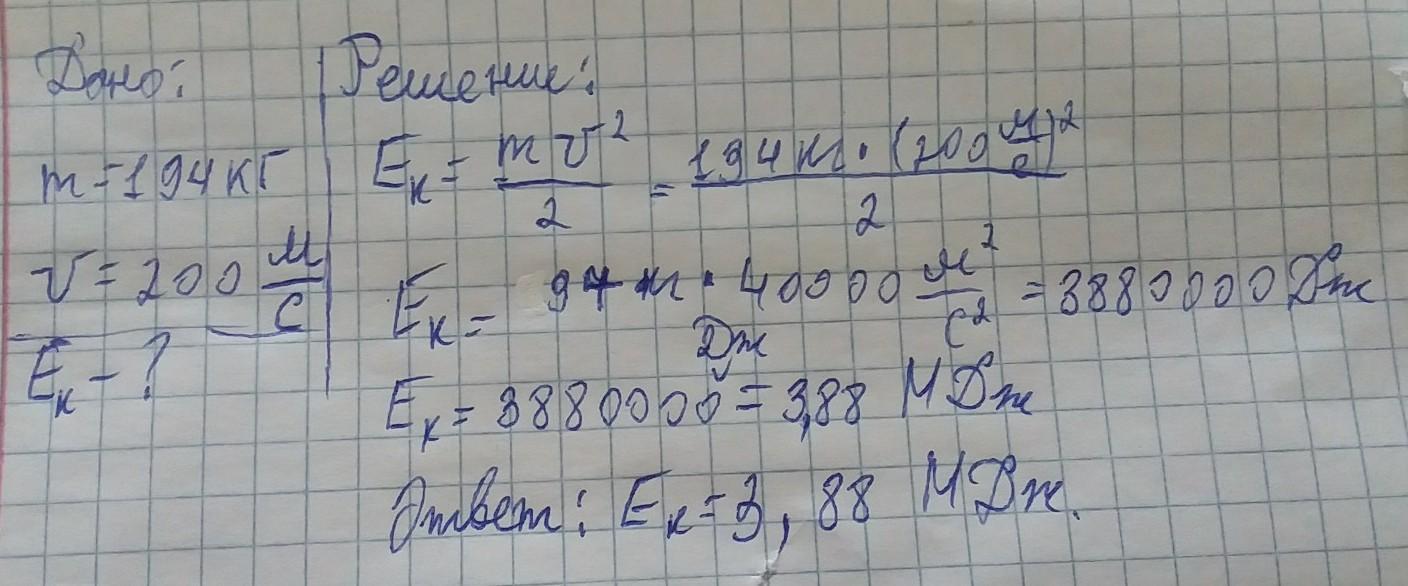 Дано:
m=194кг
v=200 м/с
Eк-?
Решение:
Eк= mv²/2 = 194кг·(200 м/с)²/2
Eк= 97 кг·40000 м²/с² =3880000Дж
Дж
Eк=3880000=3,88 МДж
Ответ: Eк=3,88 МДж.